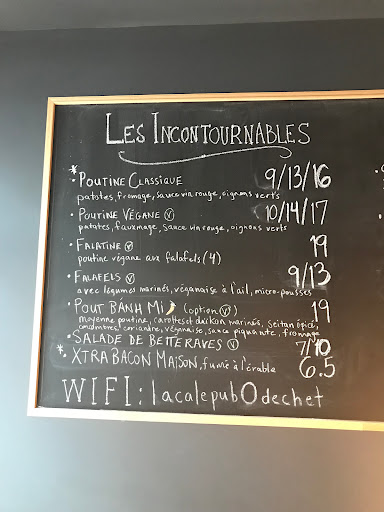 LES INCONTOURNABLES
* POUTINE CLASSIQUE 9/13/16
patates, fromage, sauce vin rouge, oignons verts
• POUTINE VÉGANE Ⓥ 10/14/17
patates, fauxmage, sauce vin rouge, oignons verts
• FALATINE Ⓥ 19
poutine végane aux falafels (4)
• FALAFELS Ⓥ 9/13
avec légumes marinés, véganaise à l'ail, micro-pousses
• POUT BANH MI 🌶 (option Ⓥ) 19
moyenne poutine, carottes et daikon marinés, seitan épicé,
concombres, coriandre, véganaise, sauce piquante, fromage
• SALADE DE BETTERAVES Ⓥ 7/10
*• XTRA BACON MAISON, fumé à l'érable 6.5
WIFI : lacalepub0dechet